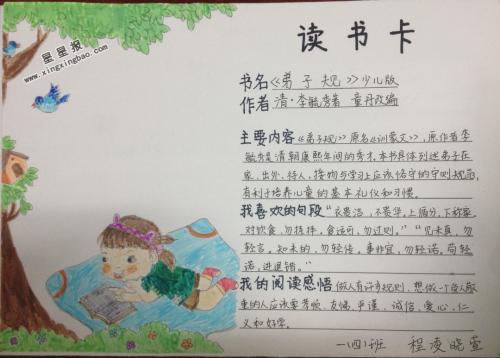 星星报
www.xingxingbao.com
读书卡
书名《弟子规》少儿版
作者 清·李毓秀著 童丹改编
主要内容《弟子规》原名《训蒙文》,原作者李
毓秀是清朝康熙年间的秀才。本书具体列述弟子在
家、出外、待人、接物与学习上应该恪守的守则规范,
有利于培养儿童的基本礼仪和习惯。
我喜欢的句段“衣贵洁,不贵华,上循分,下称家。
对饮食,勿拣择,食适可,勿过则。”“见未真,勿
轻言,知未的,勿轻传。事非宜,勿轻诺。苟轻
诺,进退错。”
我的阅读感悟 做人有许多规则,想做一个受人敬
重的人应该要孝顺、友悌、严谨、诚信、爱心、仁
义和好学。
一(四)班 程凌晓萱